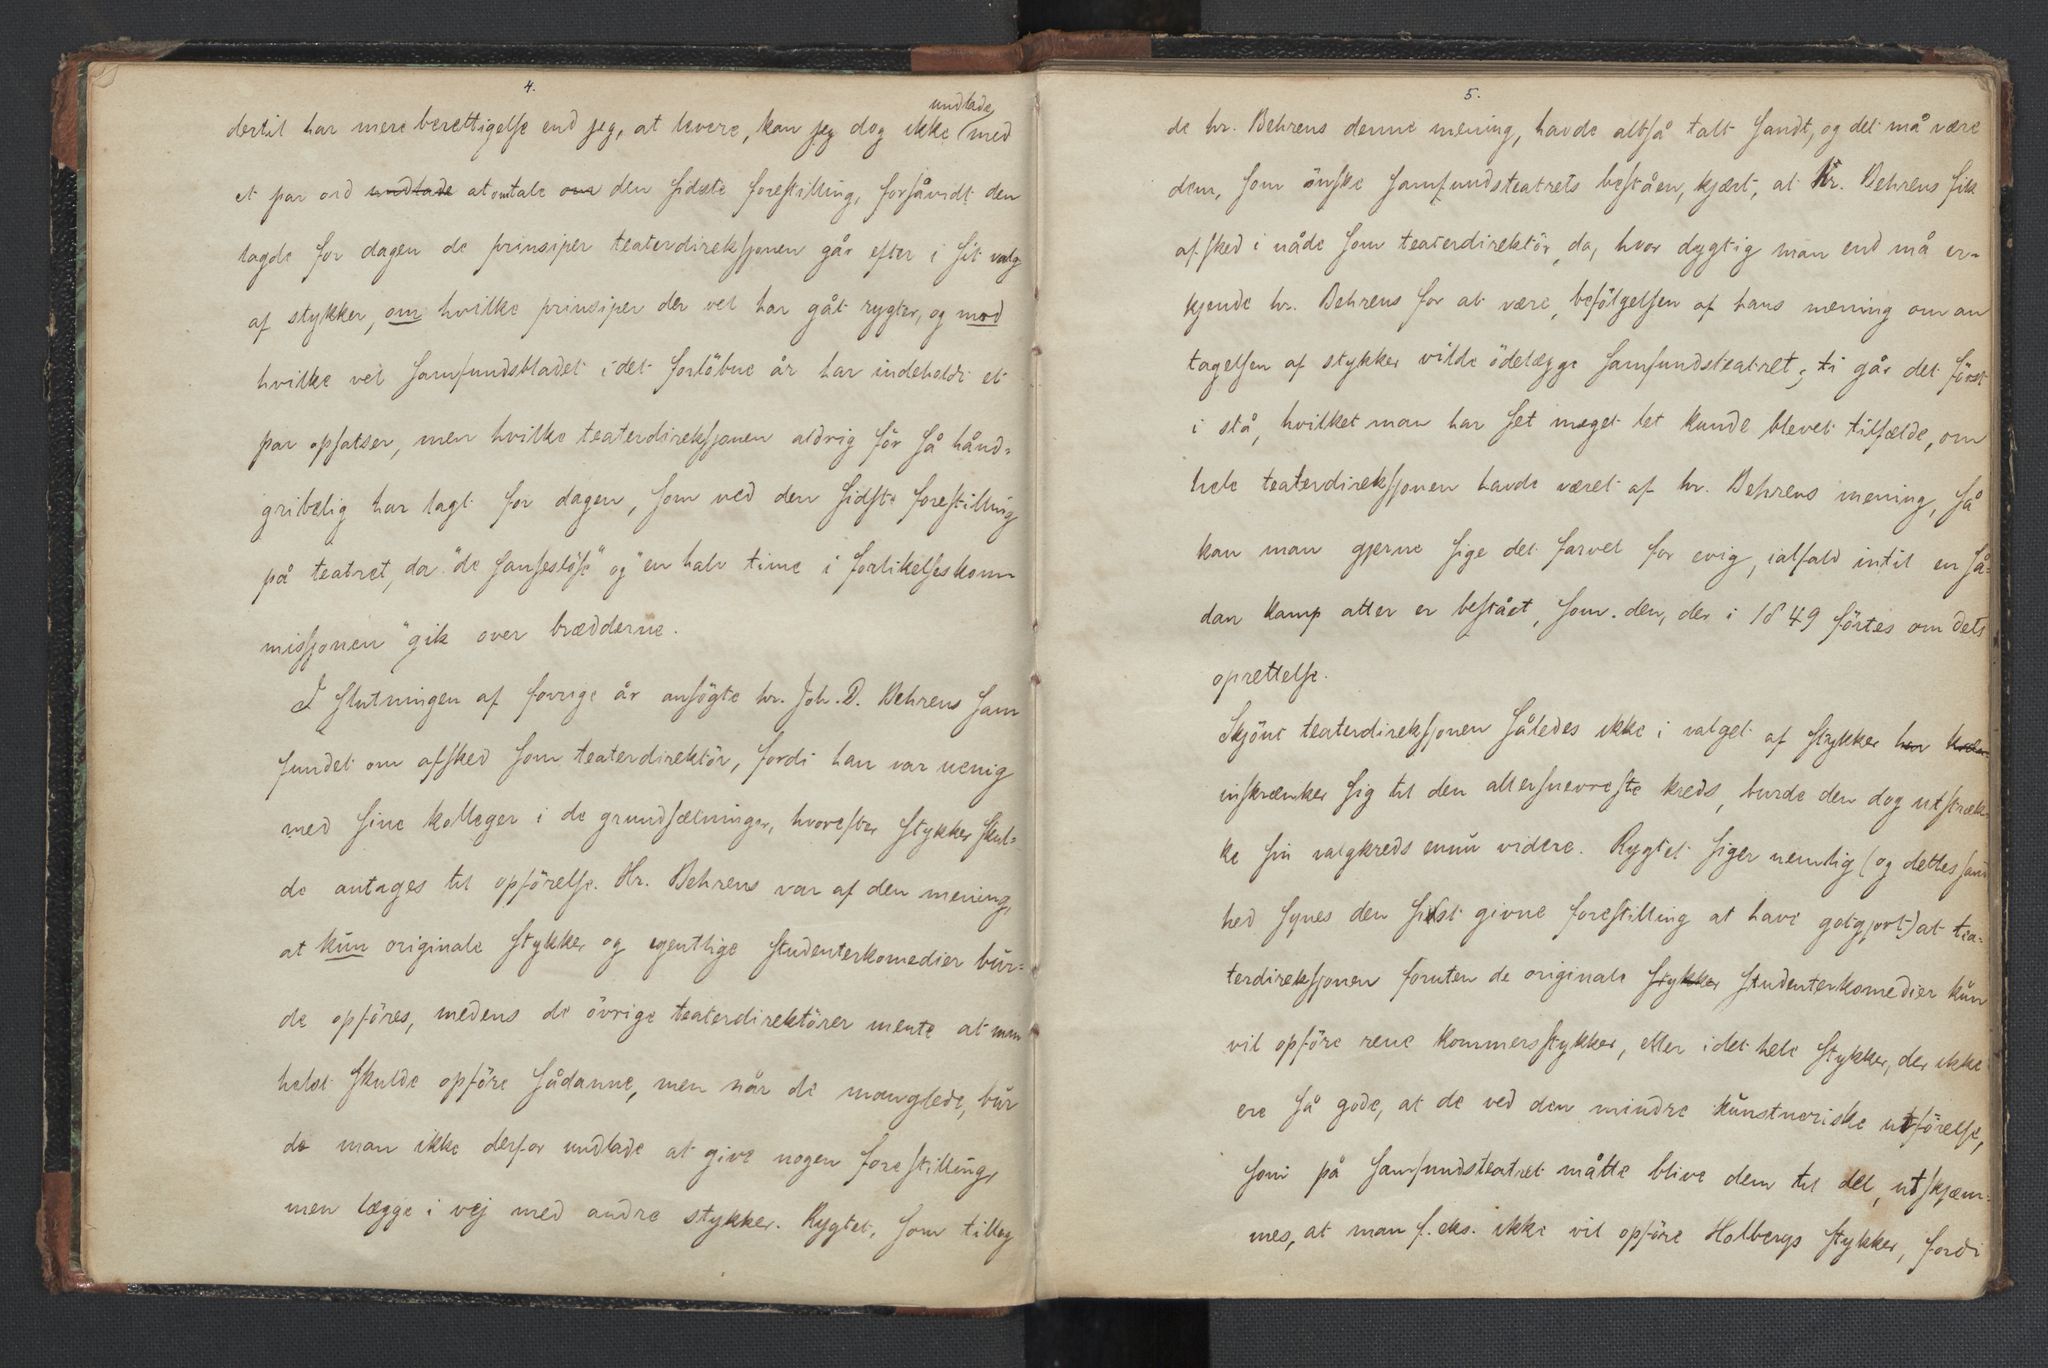 4.
undlade
dertil har mere berettigelse end jeg, at levere, kan jeg dog ikke med
et par ord undlade at omtale om den sidste forestilling, forsåvidt den
lagde for dagen de prinsiper teaterdireksjonen går efter i sit valg
af stykker, om hvilke prinsiper der vel har gåt rygter, og mod
hvilke vel samfundsbladet i det forløbne år har indeholdt et
par opsatser, men hvilke teaterdireksjonen aldrig før så hånd-
gribelig har lagt for dagen, som ved den sidste forestilling
på teatret, da "de sanseslöse" og "en halv time i forlikelseskom
missjonen" gik over brædderne.
I slutningen af forrige år ansøgte hr. Joh. D. Behrens sam
fundet om afsked som teaterdirektör, fordi han var uenig
med sine kolleger i de grundsætninger, hvorefter stykker skul-
de antages til opförelse. Hr. Behrens var af den mening,
at kun originale stykker og egentlige studenterkomedier bur-
de opföres, medens de övrige teaterdirektörer mente at man
helst skulde opföre sådanne, men når de manglede, bur
de man ikke derfor undlade at give nogen forestilling,
men lægge i vej med andre stykker. Rygtet, som tillag
5.
de hr. Behrens denne mening, havde altså talt sandt, og det må være
dem, som önske samfundsteatrets beståen, kjært, at hr. Behrens fik
afsked i nåde som teaterdirektör, da, hvor dygtig man end må er-
kjende hr. Behrens for at være, befölgelsen af hans mening om an
tagelsen af stykker vilde ödelægge samfundsteatret; ti går det först
i stå, hvilket man har set meget let kunde blevet tilfælde, om
hele teaterdireksjonen havde været af hr. Behrens mening, så
kan man gjerne sige det farvel for evig, ialfald intil en så-
dan kamp atter er bestået, som den, der i 1849 förtes om dets
oprettelse.
Skjönt teaterdireksjonen således ikke i valget af stykker har
inskrænker sig til den allersnevreste kreds, burde den dog utstræk-
ke sin valgkreds ennu videre. Rygtet siger nemlig (og dettes sand
hed synes den sidst givne forestilling at have gotgjort) at tea-
terdireksjonen foruten de originale stykker studenterkomedier kun
vil opföre rene kommersstykker, eller i det hele stykker, der ikke
ere så gode, at de ved den mindre kunstneriske utförelse,
som på samfundsteatret måtte blive dem til del, utskjæm-
mes, at man f. eks. ikke vil opföre Holbergs stykker, fordi